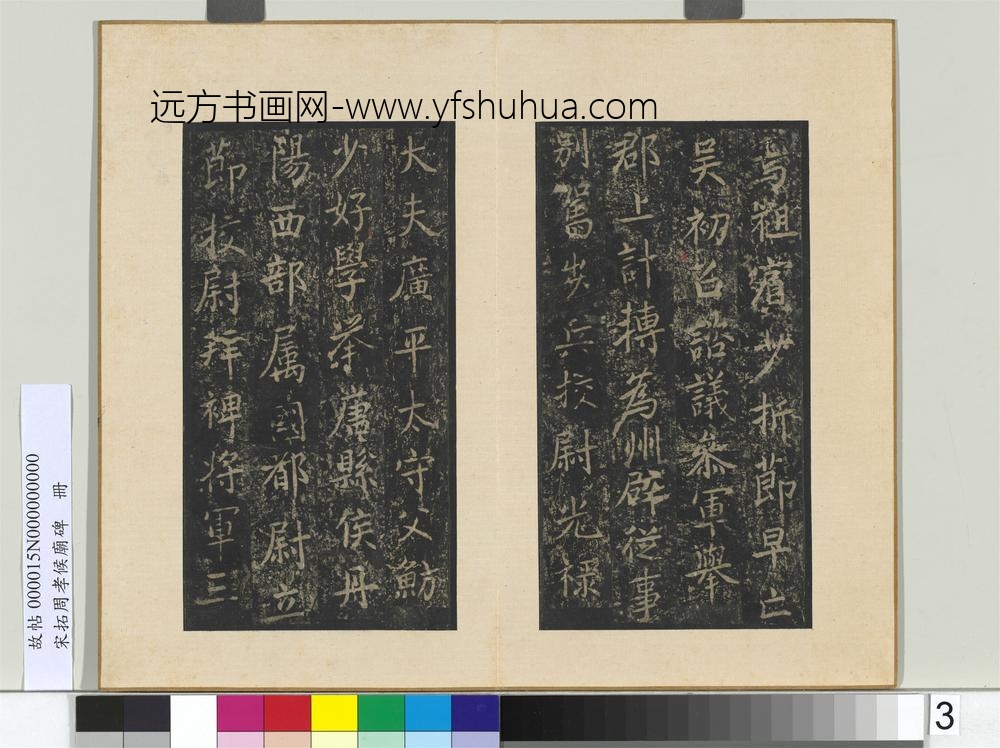 远方书画网-www.yfshuhua.com
焉祖賓少折節早亡
吴初召諮議叅軍舉
郡上計轉為州辟從事
别駕步兵挍尉光禄
大夫廣平太守父魴
少好學舉廉縣侯丹
陽西部属國都尉立
節挍尉拜裨将軍三
故帖 000015N000000000
宋拓周孝候廟碑 冊
3